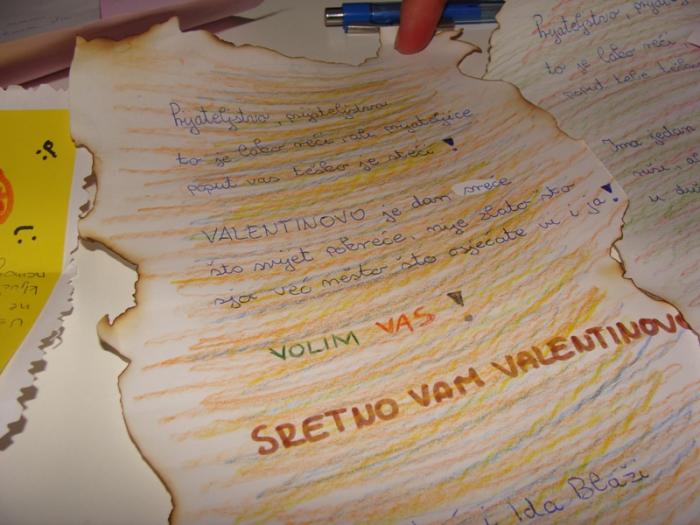 Prijateljstvo, prijateljstvo
to je lako reći ali prijateljice
poput vas teško je steći!
VALENTINOVO je dan sreće
što svijet pokreće, nije zlato što
sja već nešto što osjećate vi i ja!
VOLIM VAS!
SRETNO VAM VALENTINOVO
i Ida Blaži
Prijateljstvo,
to je lako reći
poput
Ima jedan
u